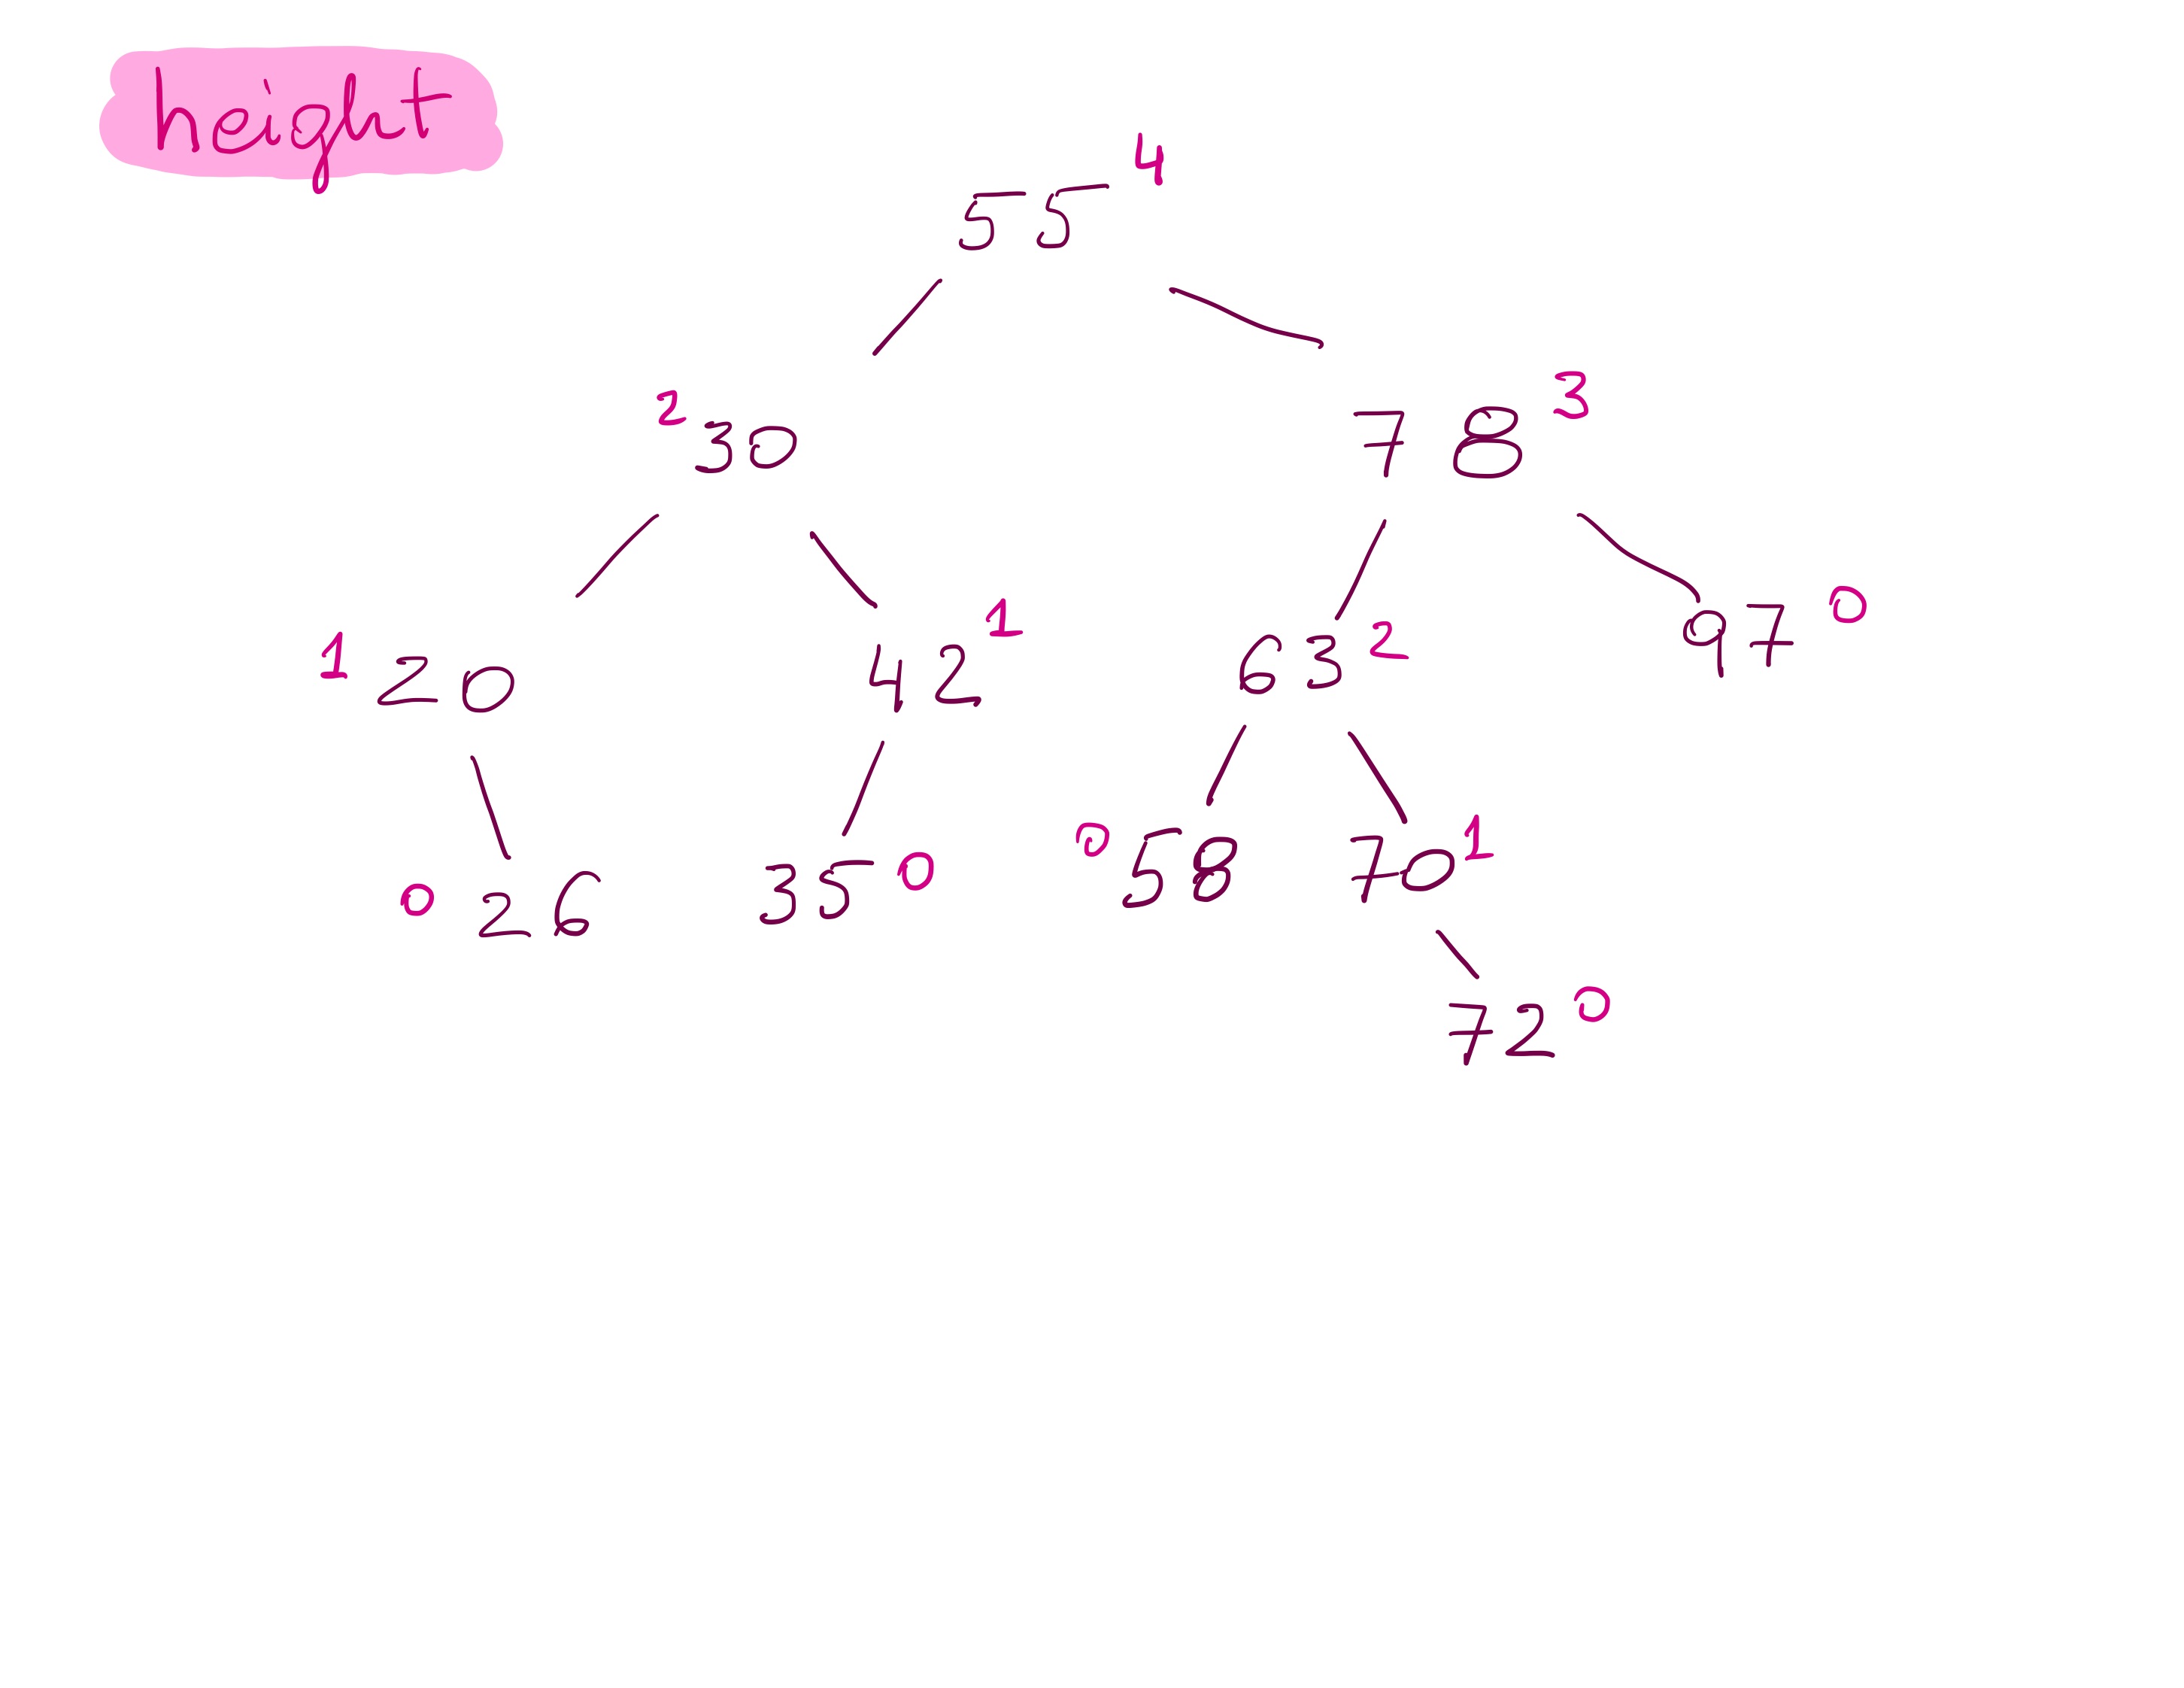 height
4
55
2 30
78 3
1 20
42 1
63 2
97 0
0 26
35 0
0 58
70 1
72 0